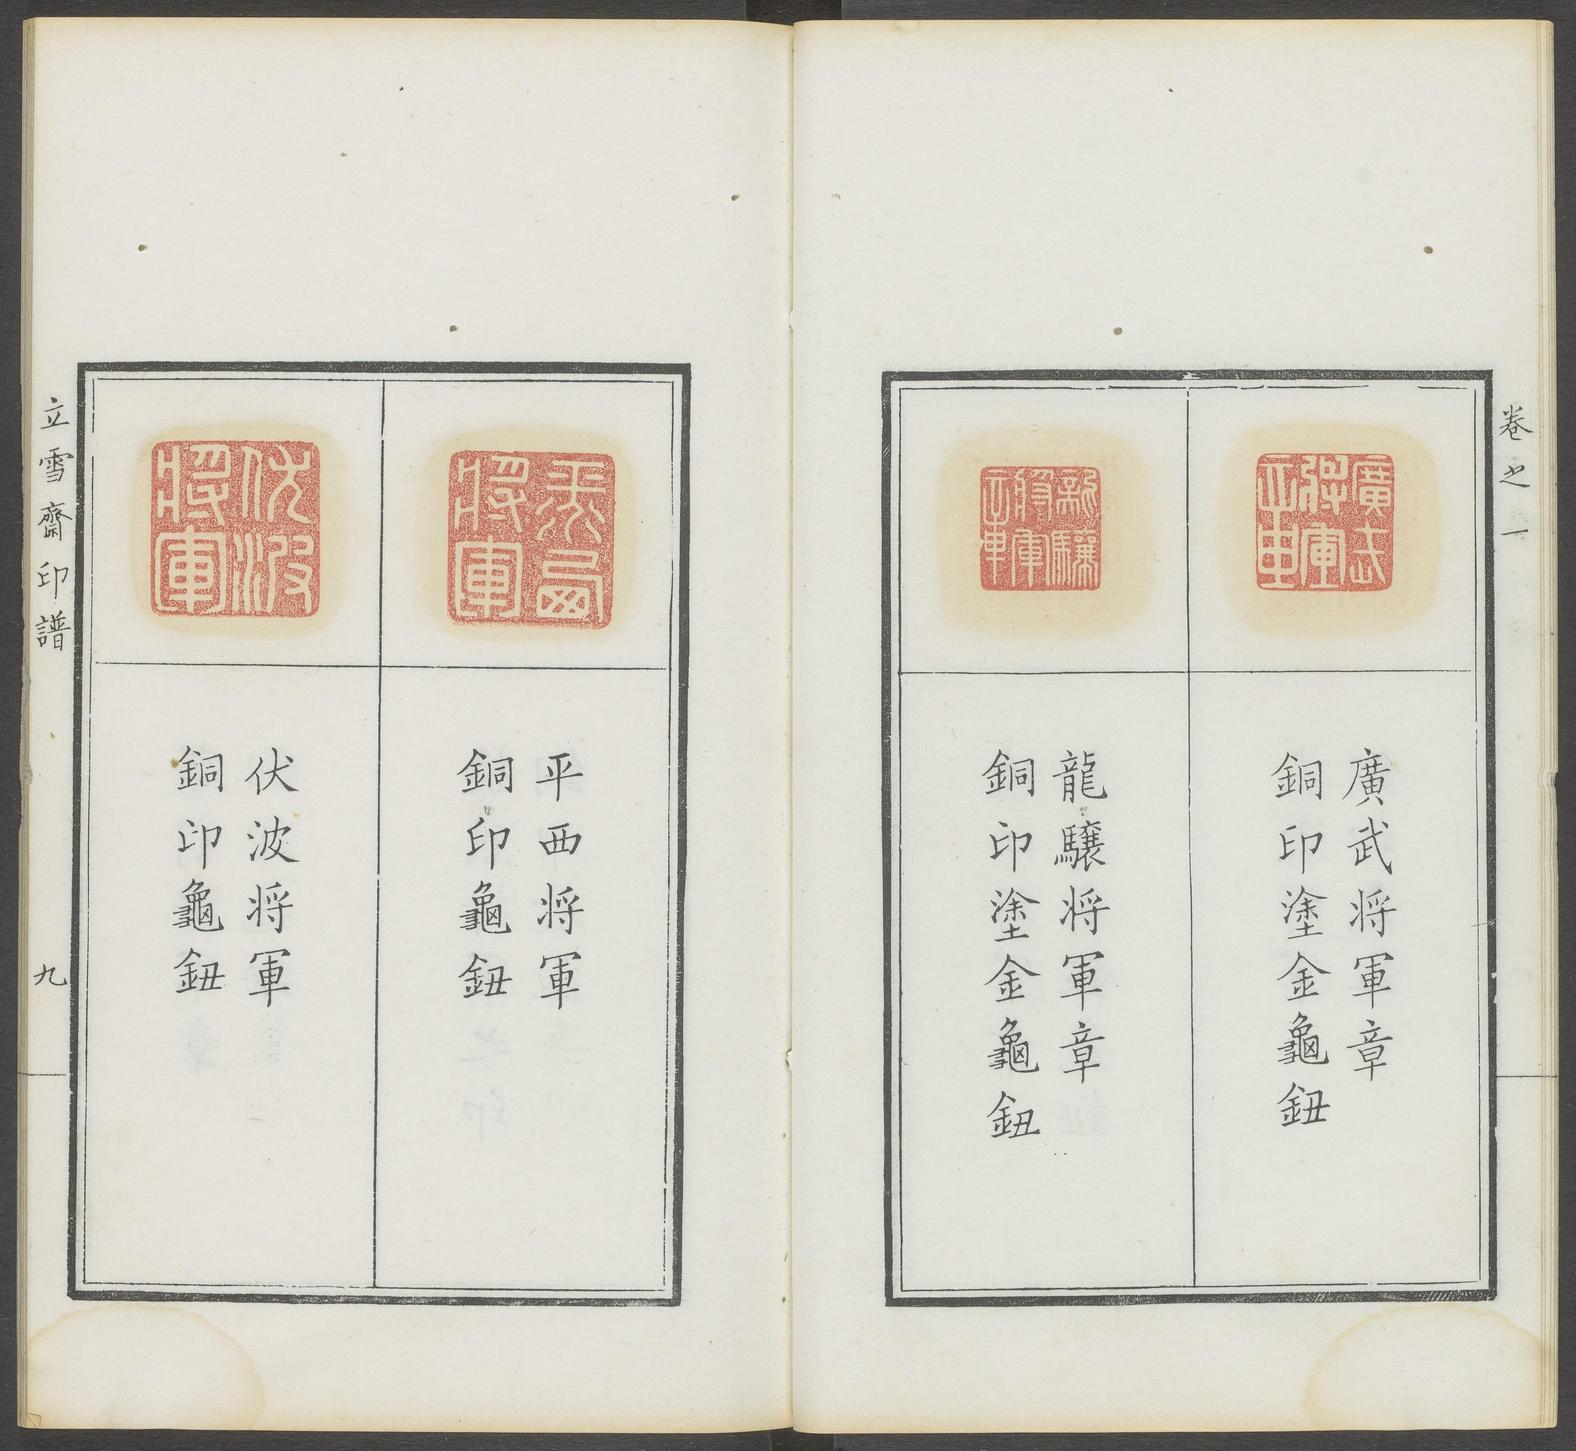 卷之一
廣武將軍章
廣武将軍章
銅印塗金龜鈕
龍驤將軍章
龍驤将軍章
銅印塗金龜鈕
平西將軍
平西将軍
銅印龜鈕
伏波將軍
伏波将軍
銅印龜鈕
立雪齋印譜
九